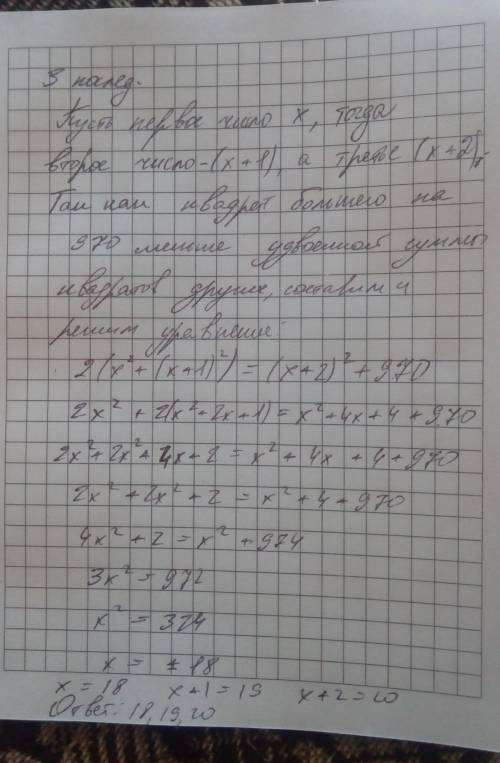 3 послед.
Пусть первое число x, тогда
второе число-(x+1), а третье (x+2)
Так как квадрат большего на
970 меньше удвоенной суммы
квадратов других, составим и
решим уравнение:
2(x²+(x+1)²)=(x+2)²+970
2x²+2(x²+2x+1)=x²+4x+4+970
2x²+2x²+4x+2=x²+4x+4+970
2x²+2x²+2=x²+4+970
4x²+2=x²+974
3x²=972
x²=324
x=±18
x=18 x+1=19 x+2=20
Ответ: 18,19,20